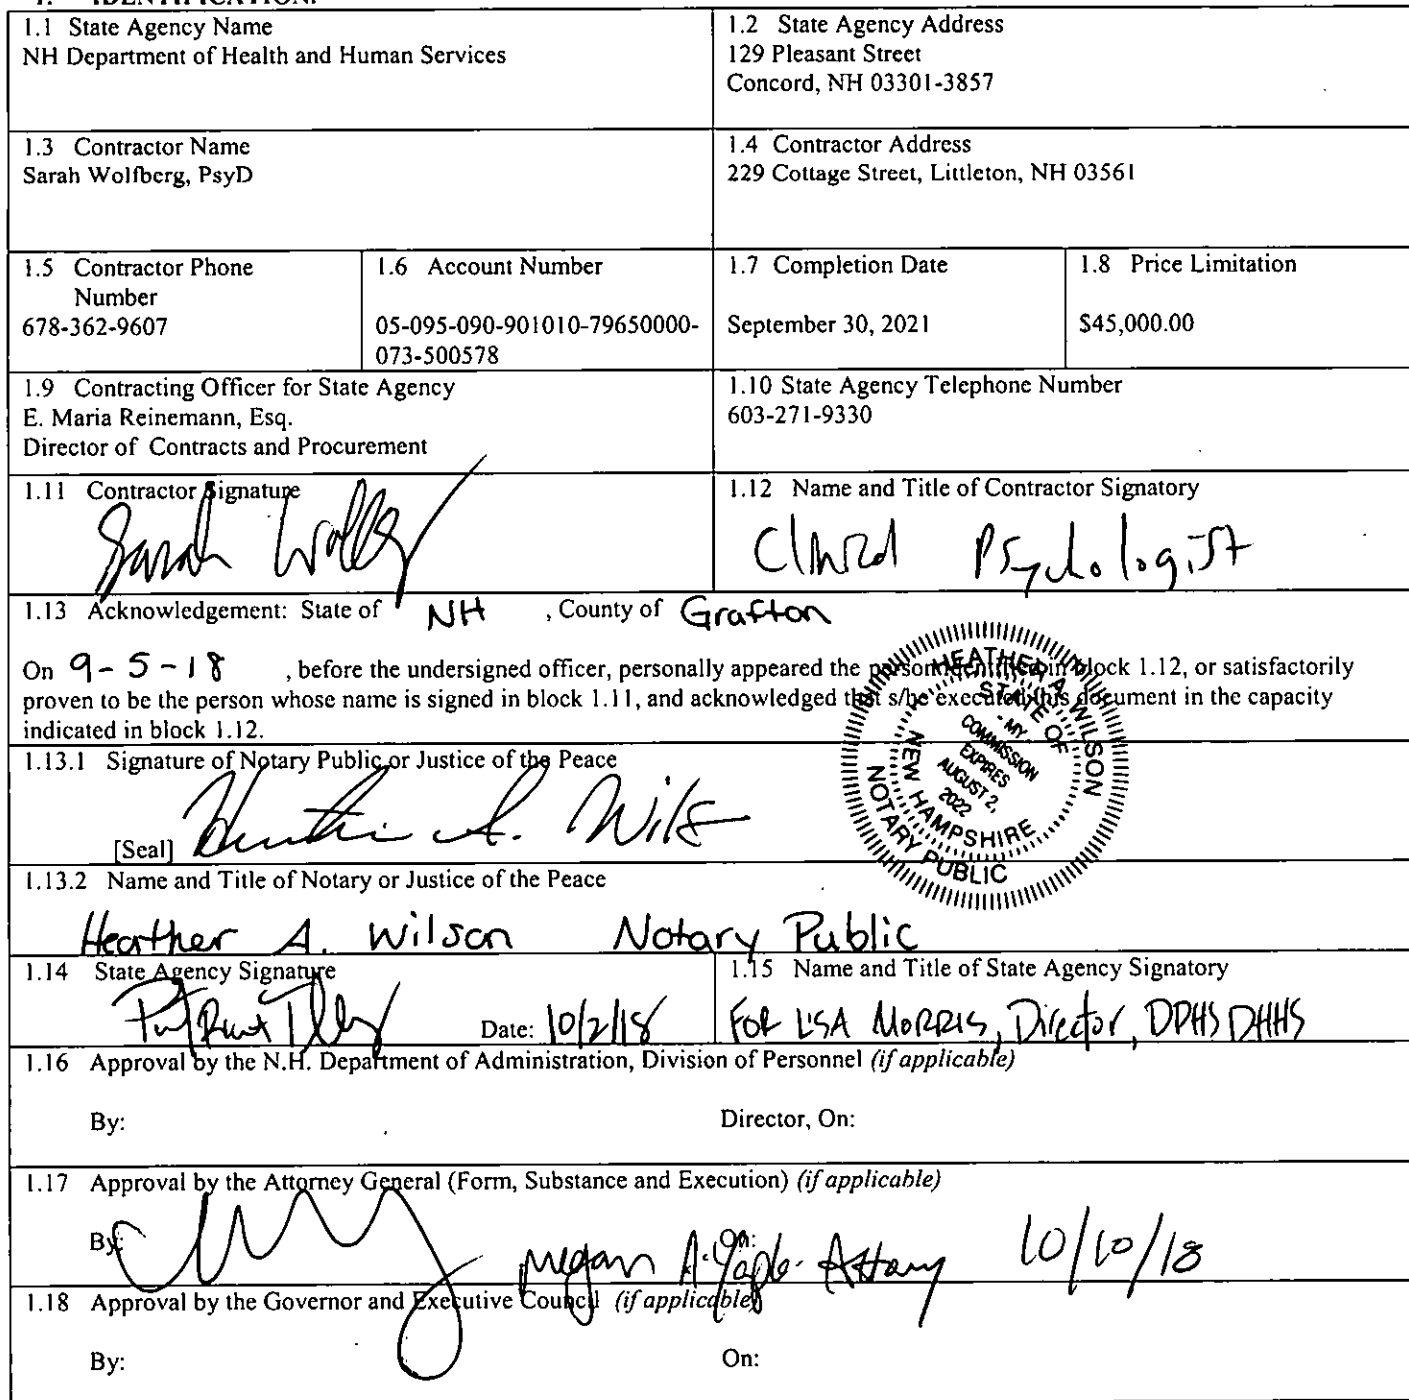 1. IDENTIFICATION.
1.1 State Agency Name
NH Department of Health and Human Services
1.2 State Agency Address
129 Pleasant Street
Concord, NH 03301-3857
1.3 Contractor Name
Sarah Wolfberg, PsyD
1.4 Contractor Address
229 Cottage Street, Littleton, NH 03561
1.5 Contractor Phone
Number
678-362-9607
1.6 Account Number
05-095-090-901010-79650000-
073-500578
1.7 Completion Date
September 30, 2021
1.8 Price Limitation
$45,000.00
1.9 Contracting Officer for State Agency
E. Maria Reinemann, Esq.
Director of Contracts and Procurement
1.10 State Agency Telephone Number
603-271-9330
1.11 Contractor Signature
Sarah
1.12 Name and Title of Contractor Signatory
Psychologist
1.13 Acknowledgement: State of NH , County of Grafton
On 9-5-18 , before the undersigned officer, personally appeared the person identified in block 1.12, or satisfactorily
proven to be the person whose name is signed in block 1.11, and acknowledged that s/he executed this document in the capacity
indicated in block 1.12.
HEATHER A. WILSON
STATE OF
- MY -
COMMISSION
EXPIRES
AUGUST 2,
2022
NEW HAMPSHIRE
NOTARY PUBLIC
1.13.1 Signature of Notary Public or Justice of the Peace
[Seal] Heather A. Wils
1.13.2 Name and Title of Notary or Justice of the Peace
Heather A. Wilson Notary Public
1.14 State Agency Signature
Date: 10/2/18
1.15 Name and Title of State Agency Signatory
FOR LISA MORRIS, Director, DPHS DHHS
1.16 Approval by the N.H. Department of Administration, Division of Personnel (if applicable)
By: Director, On:
1.17 Approval by the Attorney General (Form, Substance and Execution) (if applicable)
By: On: Megan A. 10/10/18
1.18 Approval by the Governor and Executive Council (if applicable)
By: On: